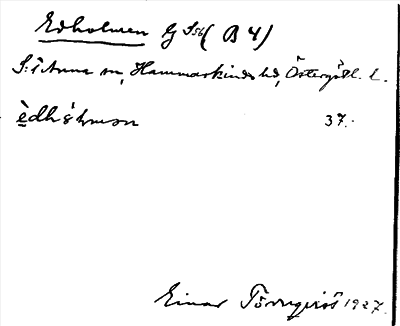 Edholmen G S56 (B 4)
S:t Anna sn, Hammarkinds hd, Östergötl. l.
37.
Einar Törnqvist 1927.